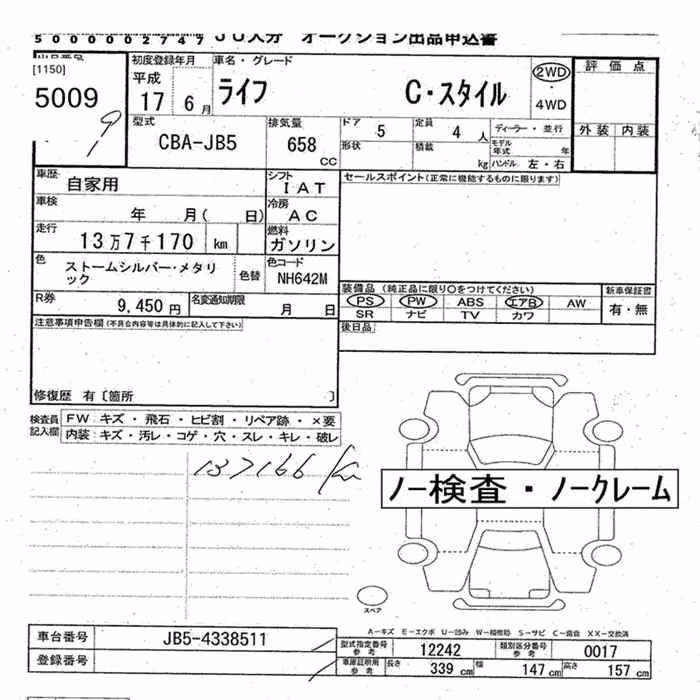 5000002747 JU大分 オークション出品申込書
出品番号 初度登録年月 車名・グレード 評価点
[1150] 平成
5009 17 6月 ライフ C・スタイル 2WD
・4WD
9 型式 排気量 ドア 定員 ディーラー・並行 外装 内装
CBA-JB5 658 CC 5 4人
形状 積載 kg モデル年式 年
ハンドル 左・右
車歴 自家用 シフト IAT セールスポイント(正常に機能するものに限ります)
車検 年 月( 日) 冷房 AC
走行 13万7千170 km 燃料 ガソリン
色 ストームシルバー・メタリック 色替 色コード NH642M
装備品 (純正品に限り〇をつけてください) 新車保証書
R券 9,450円 名変通知期限 月 日 PS PW ABS エアB AW 有・無
SR ナビ TV カワ
注意事項申告欄(不具合内容等は具体的に記入して下さい) 後日品
修復歴 有〔箇所 〕
検査員記入欄 FW キズ・飛石・ヒビ割・リペア跡・×要
内装:キズ・汚レ・コゲ・穴・スレ・キレ・破レ
137166 km
ノー検査・ノークレーム
スペア
A-キズ E-エクボ U-凹み W-補修跡 S-サビ C-腐食 XX-交換済
車台番号 JB5-4338511 型式指定番号 参考 12242 類別区分番号 参考 0017
登録番号 車庫証明用 参考 長さ 339 cm 幅 147 cm 高さ 157 cm